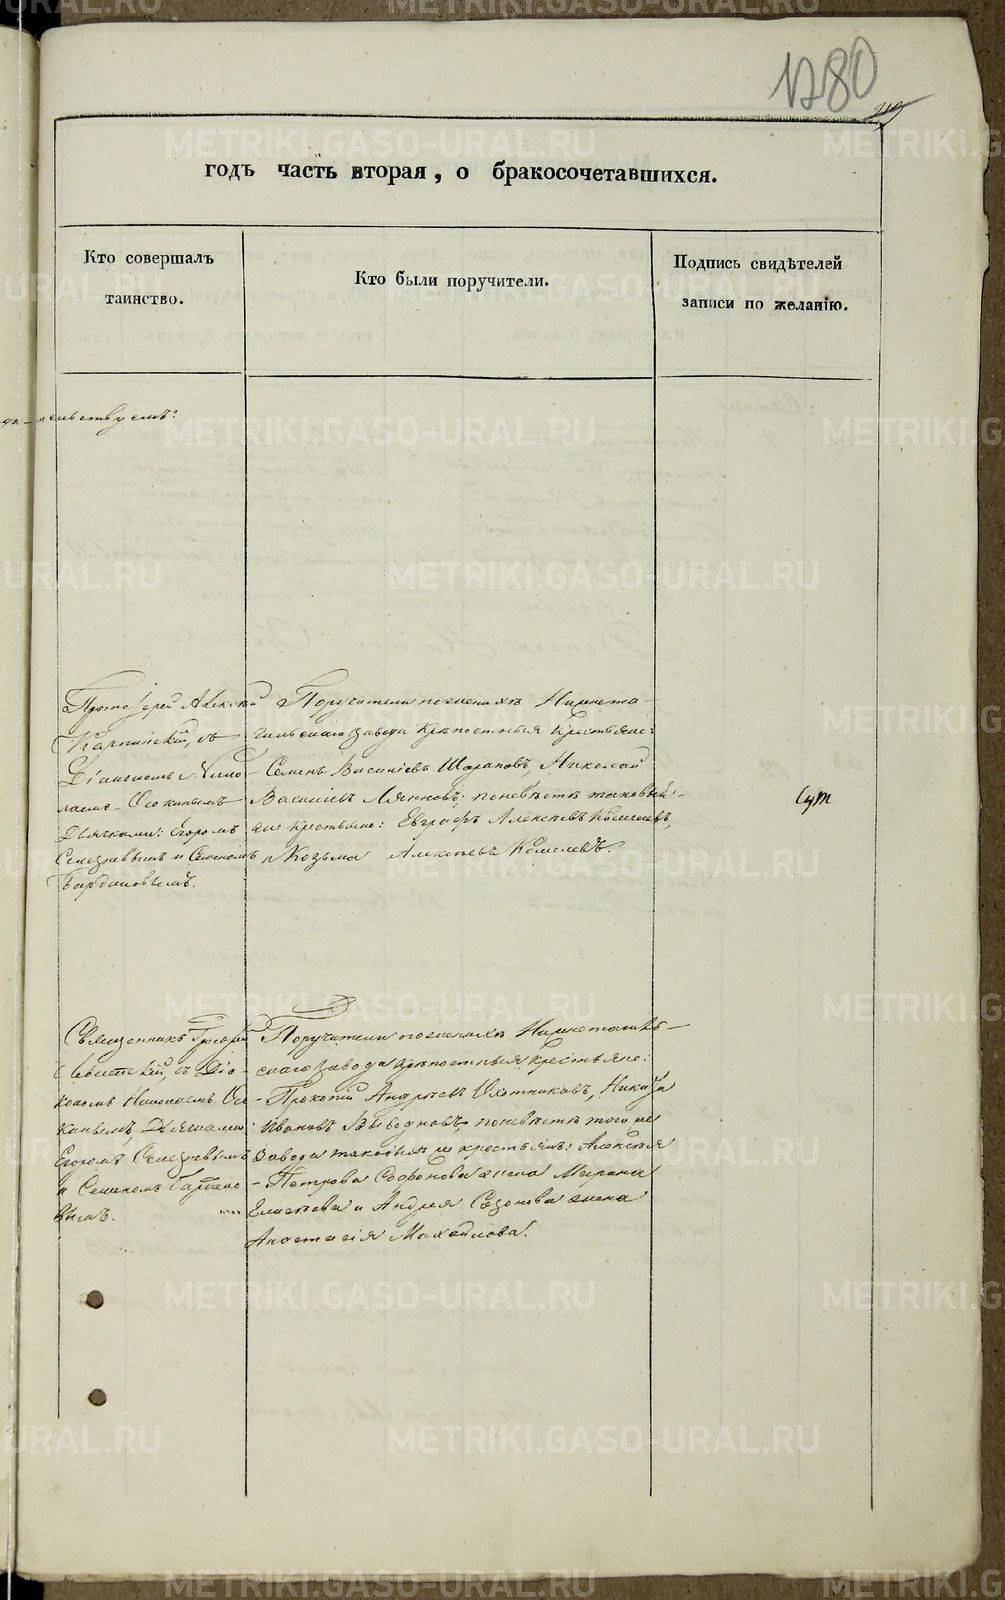 1280
годъ часть вторая, о бракосочетавшихся.
Кто совершалъ
таинство.
Кто были поручители.
Подпись свидѣтелей
записи по желанію.
Протоіерей Алексѣй
Карпинскій, съ
Діакономъ Нико-
лаемъ Осокинымъ
Дьячками: Егоромъ
Селезневымъ и Семеномъ
Бардановымъ.
Поручители по женихѣ Нижнета-
гильскаго завода крѣпостные крестьяне:
Семенъ Василіевъ Шараповъ, Николай
Василіевъ Лянновъ; по невѣстѣ таковые
же крестьяне: Евграфъ Алексѣевъ Кошелевъ,
и Козьма Алексѣевъ Кошелевъ.
Священникъ Григорій
съ Діа-
кономъ Николаемъ Осо-
кинымъ, Дьячками
Егоромъ Селезневымъ
и Семеномъ Бардано-
вымъ.
Поручители по женихѣ Нижнетагиль-
скаго завода крѣпостные крестьяне:
Прокопій Андреевъ Охотниковъ, Никита
Ивановъ Выводновъ, по невѣстѣ того же
завода таковыя же крестьянъ: Алексѣя
Петрова Софронова жена Марина
Елисѣева и Андрея Созонова жена
Анастасія Михайлова.
METRIKI.GASO-URAL.RU